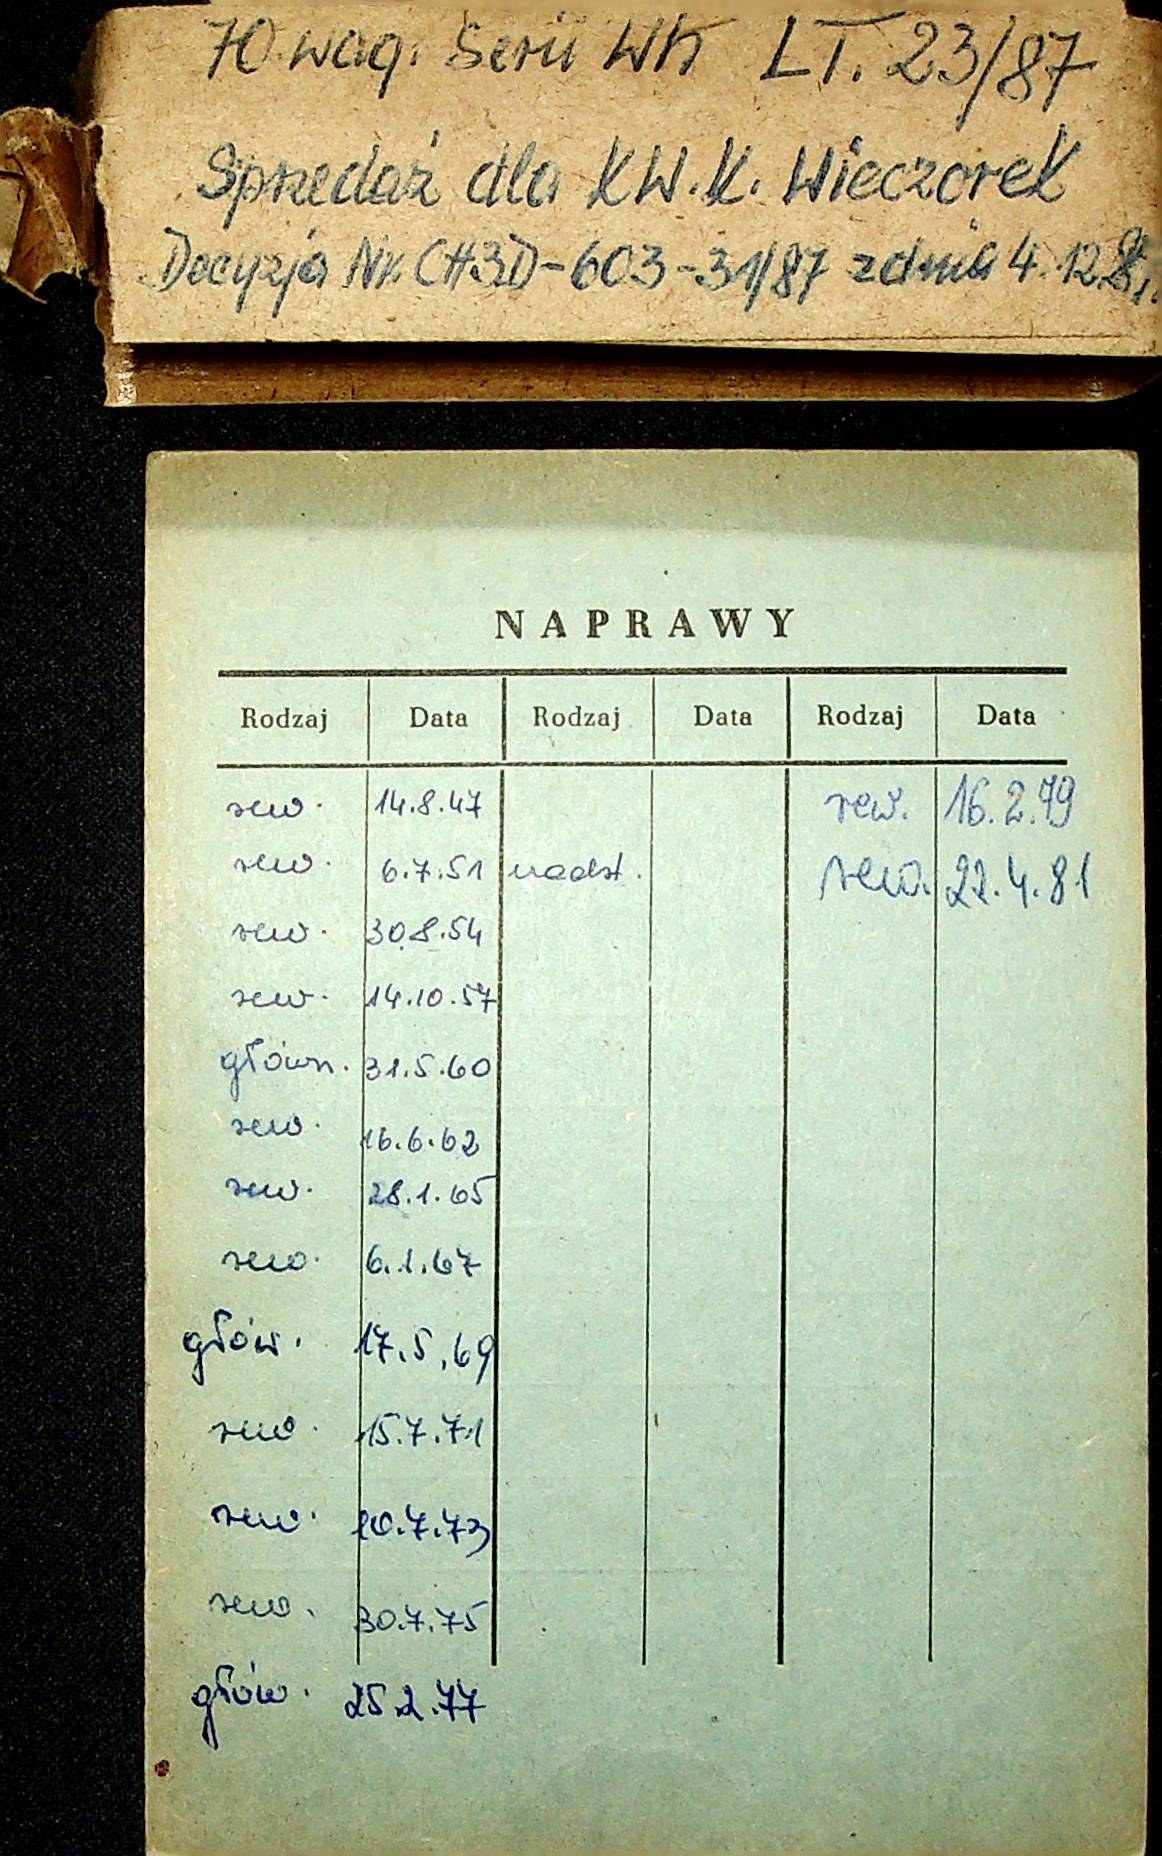 70 wag. Serii WK LT. 23/87
Sprzedaż dla KW.K. Wieczorek
Decyzja Nr. CH3D-603-31/87 z dnia 4.12.
NAPRAWY
Rodzaj Data Rodzaj Data Rodzaj Data
rew. 14.8.47 rew. 16.2.79
rew. 6.7.51 nadst. rew. 22.4.81
rew. 30.8.54
rew. 14.10.57
główn. 31.5.60
rew. 16.6.62
rew. 28.1.65
rew. 6.1.67
głów. 17.5.69
rew. 15.7.71
rew. 10.7.73
rew. 30.7.75
głów. 25.2.77